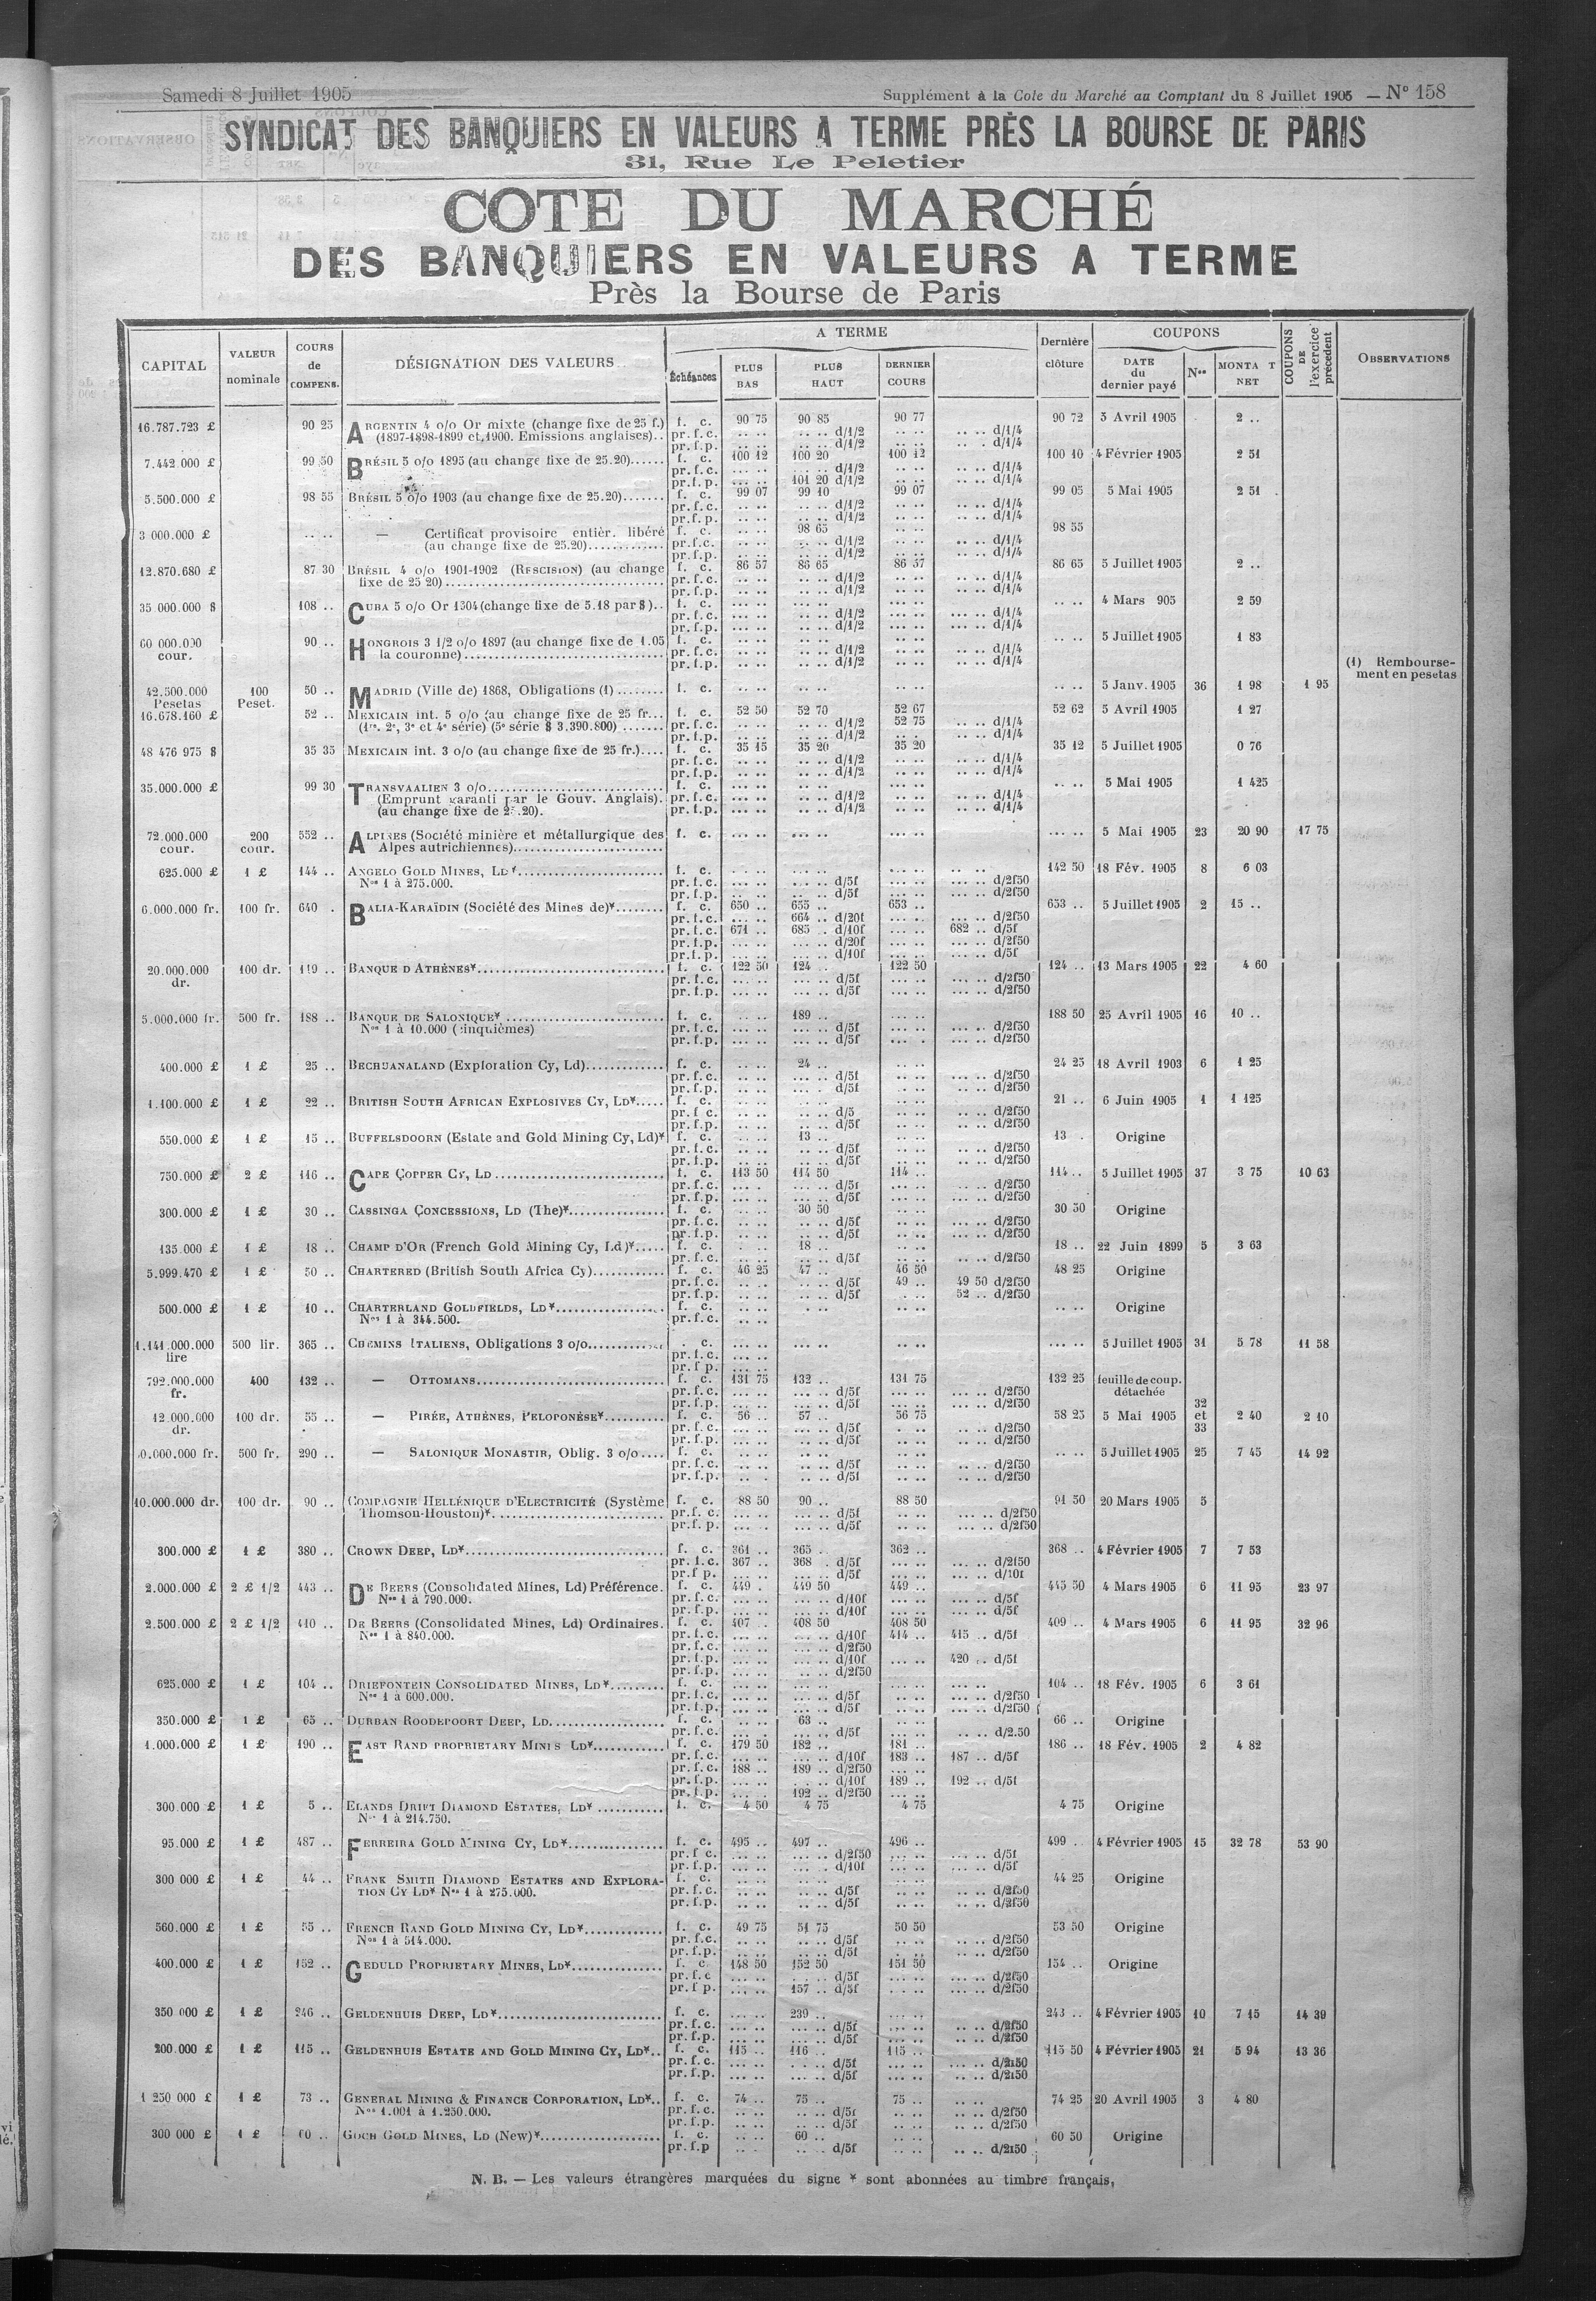 Samedi 8 Juillet 1905 Supplément à la Cote du Marché au Comptant du 8 Juillet 1905 — N° 158
SYNDICAT DES BANQUIERS EN VALEURS A TERME PRÈS LA BOURSE DE PARIS
31, Rue Le Peletier
COTE DU MARCHÉ
DES BANQUIERS EN VALEURS A TERME
Près la Bourse de Paris
CAPITAL VALEUR nominale COURS de COMPENS. DÉSIGNATION DES VALEURS A TERME Échéances PLUS BAS PLUS HAUT DERNIER COURS Dernière clôture COUPONS DATE du dernier payé Nos MONTA T NET COUPONS DE l'exercice précédent OBSERVATIONS
16.787.723 £ 90 25 ARGENTIN 4 o/o Or mixte (change fixe de 25 f.) f. c. 90 75 90 85 90 77 90 72 3 Avril 1905 2 ..
(1897-1898-1899 et 1900. Emissions anglaises).. pr. f.c. .. .. .. .. d/1/2 .. .. .. .. d/1/4
pr. f.p. .. .. .. .. d/1/2 .. .. .. .. d/1/4
7.442.000 £ 99 50 BRÉSIL 5 o/o 1895 (au change fixe de 25.20)...... f. c. 100 12 100 20 100 12 100 10 4 Février 1905 2 51
pr. f.c. d/1/2 d/1/4
pr. f.p. 101 20 d/1/2 d/1/4
5.500.000 £ 98 55 BRÉSIL 5 o/o 1903 (au change fixe de 25.20)....... f. c. 99 07 99 10 99 07 99 05 5 Mai 1905 2 51
pr. f.c. d/1/2 d/1/4
pr. f.p. d/1/2 d/1/4
3 000.000 £ .. .. — Certificat provisoire entièr. libéré f. c. 98 65 98 55
(au change fixe de 25.20)............ pr. f.c. d/1/2 d/1/4
pr. f.p. d/1/2 d/1/4
12.870.680 £ 87 30 BRÉSIL 4 o/o 1901-1902 (RESCISION) (au change f. c. 86 57 86 65 86 57 86 65 5 Juillet 1905 2 ..
fixe de 25 20) pr. f.c. d/1/2 d/1/4
pr. f.p. d/1/2 d/1/4
35 000.000 $ 108 .. CUBA 5 o/o Or 1904 (change fixe de 5.18 par $).. f. c. .. .. 4 Mars 905 2 59
pr. f.c. d/1/2 d/1/4
pr. f.p. d/1/2 d/1/4
60 000.000 cour. 90 .. HONGROIS 3 1/2 o/o 1897 (au change fixe de 1.05 f. c. .. .. 5 Juillet 1905 1 83
la couronne) pr. f.c. d/1/2 d/1/4
pr. f.p. d/1/2 d/1/4
(1) Rembourse-
ment en pesetas
42.500.000 Pesetas 100 Peset. 50 .. MADRID (Ville de) 1868, Obligations (1) ........ f. c. .. .. 5 Janv. 1905 36 1 98 1 95
16.678.160 £ 52 .. MEXICAIN int. 5 o/o (au change fixe de 25 fr... f. c. 52 50 52 70 52 67 52 62 5 Avril 1905 1 27
(1re. 2e, 3e et 4e série) (5e série $ 3.390.800) ....... pr. f.c. d/1/2 52 75 d/1/4
pr. f.p. d/1/2 d/1/4
48 476 975 $ 35 35 MEXICAIN int. 3 o/o (au change fixe de 25 fr.).... f. c. 35 15 35 20 35 20 35 12 5 Juillet 1905 0 76
pr. f.c. d/1/2 d/1/4
pr. f.p. d/1/2 d/1/4
35.000.000 £ 99 30 TRANSVAALIEN 3 o/o f. c. .. .. 5 Mai 1905 1 425
(Emprunt garanti par le Gouv. Anglais). pr. f.c. d/1/2 d/1/4
(au change fixe de 25.20). pr. f.p. d/1/2 d/1/4
72.000.000 cour. 200 cour. 552 .. ALPINES (Société minière et métallurgique des f. c. 5 Mai 1905 23 20 90 17 75
Alpes autrichiennes)
625.000 £ 1 £ 144 .. ANGELO GOLD MINES, LD* f. c. 142 50 18 Fév. 1905 8 6 03
Nos 1 à 275.000. pr. f.c. d/5f d/2f50
pr. f.p. d/5f d/2f50
6.000.000 fr. 100 fr. 640 . BALIA-KARAÏDIN (Société des Mines de)* f. c. 650 .. 655 .. 653 .. 653 .. 5 Juillet 1905 2 15 ..
pr. f.c. 664 .. d/20f d/2f50
pr. f.c. 671 .. 685 .. d/10f 682 .. d/5f
pr. f.p. d/20f d/2f50
pr. f.p. d/10f d/5f
20.000.000 dr. 100 dr. 119 .. BANQUE D'ATHÈNES* f. c. 122 50 124 .. 122 50 124 .. 13 Mars 1905 22 4 60
pr. f.c. d/5f d/2f50
pr. f.p. d/5f d/2f50
5.000.000 fr. 500 fr. 188 .. BANQUE DE SALONIQUE* f. c. 189 .. 188 50 25 Avril 1905 16 10 ..
Nos 1 à 10.000 (cinquièmes) pr. f.c. d/5f d/2f50
pr. f.p. d/5f d/2f50
400.000 £ 1 £ 25 .. BECHUANALAND (Exploration Cy, Ld) f. c. 24 .. 24 25 18 Avril 1903 6 1 25
pr. f.c. d/5f d/2f50
pr. f.p. d/5f d/2f50
1.100.000 £ 1 £ 22 .. BRITISH SOUTH AFRICAN EXPLOSIVES CY, LD* f. c. 21 .. 6 Juin 1905 1 1 125
pr. f c. d/5 d/2f50
pr. f.p. d/5f d/2f50
550.000 £ 1 £ 15 .. BUFFELSDOORN (Estate and Gold Mining Cy, Ld)* f. c. 13 .. 13 . Origine
pr. f.c. d/5f d/2f50
pr. f.p. d/5f d/2f50
750.000 £ 2 £ 116 .. CAPE COPPER CY, LD f. c. 113 50 114 50 114 .. 114 .. 5 Juillet 1905 37 3 75 10 63
pr. f.c. d/5f d/2f50
pr. f.p. d/5f d/2f50
300.000 £ 1 £ 30 .. CASSINGA CONCESSIONS, LD (The)* f. c. 30 50 30 50 Origine
pr. f.c. d/5f d/2f50
pr. f.p. d/5f d/2f50
135.000 £ 1 £ 18 .. CHAMP D'OR (French Gold Mining Cy, Ld)* f. c. 18 .. 18 .. 22 Juin 1899 5 3 63
pr. f.c. d/5f d/2f50
5.999.470 £ 1 £ 50 .. CHARTERED (British South Africa Cy) f. c. 46 25 47 .. 46 50 48 25 Origine
pr. f.c. d/5f 49 .. 49 50 d/2f50
pr. f.p. d/5f 52 .. d/2f50
500.000 £ 1 £ 10 .. CHARTERLAND GOLDFIELDS, LD* f. c. .. .. Origine
Nos 1 à 344.500. pr. f.c.
1.141.000.000 lire 500 lir. 365 .. CHEMINS ITALIENS, Obligations 3 o/o . c. 5 Juillet 1905 31 5 78 11 58
pr. f.c.
pr. f p.
792.000.000 fr. 400 132 .. — OTTOMANS f. c. 131 75 132 .. 131 75 132 25 feuille de coup. détachée
pr. f.c. d/5f d/2f50
pr. f.p. d/5f d/2f50
12.000.000 dr. 100 dr. 55 .. — PIRÉE, ATHÈNES, PELOPONÈSE* f. c. 56 .. 57 .. 56 75 58 25 5 Mai 1905 32 et 33 2 40 2 10
pr. f.c. d/5f d/2f50
pr. f.p. d/5f d/2f50
0.000.000 fr. 500 fr. 290 .. — SALONIQUE MONASTIR, Oblig. 3 o/o .... f. c. .. .. 5 Juillet 1905 25 7 45 14 92
pr. f.c. d/5f d/2f50
pr. f.p. d/5f d/2f50
10.000.000 dr. 100 dr. 90 .. COMPAGNIE HELLÉNIQUE D'ELECTRICITÉ (Système f. c. 88 50 90 .. 88 50 91 50 20 Mars 1905 5
Thomson-Houston)* pr. f. c. d/5f d/2f50
pr. f. p. d/5f d/2f50
300.000 £ 1 £ 380 .. CROWN DEEP, LD* f. c. 361 .. 365 . 362 .. 368 .. 4 Février 1905 7 7 53
pr. f.c. 367 .. 368 . d/5f d/2f50
pr. f p. d/5f d/10f
2.000.000 £ 2 £ 1/2 443 .. DE BEERS (Consolidated Mines, Ld) Préférence. f. c. 449 . 449 50 449 .. 445 50 4 Mars 1905 6 11 95 23 97
Nos 1 à 790.000. pr. f.c. d/10f d/5f
pr. f.p. d/10f d/5f
2.500.000 £ 2 £ 1/2 410 .. DE BEERS (Consolidated Mines, Ld) Ordinaires. f. c. 407 .. 408 50 408 50 409 .. 4 Mars 1905 6 11 95 32 96
Nos 1 à 840.000. pr. f.c. d/10f 414 .. 415 .. d/5f
pr. f.c. d/2f50
pr. f.p. d/10f 420 .. d/5f
pr. f.p. d/2f50
625.000 £ 1 £ 104 .. DRIEFONTEIN CONSOLIDATED MINES, LD* f. c. 104 .. 18 Fév. 1905 6 3 61
Nos 1 à 600.000. pr. f.c. d/5f d/2f50
pr. f.p. d/5f d/2f50
350.000 £ 1 £ 65 .. DURBAN ROODEPOORT DEEP, LD f. c. 63 .. 66 .. Origine
pr. f.c. d/5f d/2.50
1.000.000 £ 1 £ 190 .. EAST RAND PROPRIETARY MINES LD* f. c. 179 50 182 .. 181 .. 186 .. 18 Fév. 1905 2 4 82
pr. f.c. d/10f 183 .. 187 .. d/5f
pr. f.c. 188 .. 189 .. d/2f50
pr. f.p. d/10f 189 .. 192 .. d/5f
pr. f.p. 192 .. d/2f50
300.000 £ 1 £ 5 .. ELANDS DRIFT DIAMOND ESTATES, LD* f. c. 4 50 4 75 4 75 4 75 Origine
Nos 1 à 214.750.
95.000 £ 1 £ 487 .. FERREIRA GOLD MINING CY, LD* f. c. 495 .. 497 .. 496 .. 499 .. 4 Février 1905 15 32 78 53 90
pr. f c. d/2f50 d/5f
pr. f.p. d/10f d/5f
300 000 £ 1 £ 44 .. FRANK SMITH DIAMOND ESTATES AND EXPLORA- f. c. 44 25 Origine
TION CY LD* Nos 1 à 275.000. pr. f.c. d/5f d/2f50
pr. f.p. d/5f d/2f50
560.000 £ 1 £ 55 .. FRENCH RAND GOLD MINING CY, LD* f. c. 49 75 51 75 50 50 53 50 Origine
Nos 1 à 514.000. pr. f.c. d/5f d/2f50
pr. f.p. d/5f d/2f50
400.000 £ 1 £ 152 .. GEDULD PROPRIETARY MINES, LD* f. c 148 50 152 50 151 50 154 .. Origine
pr. f.c d/5f d/2f50
pr. f p. 157 .. d/5f d/2f50
350 000 £ 1 £ 246 .. GELDENHUIS DEEP, LD* f. c. 239 .. 243 .. 4 Février 1905 10 7 15 14 39
pr. f.c. d/5f d/2f50
pr. f.p. d/5f d/2f50
200.000 £ 1 £ 115 .. GELDENHUIS ESTATE AND GOLD MINING CY, LD*.. f. c. 115 .. 116 .. 115 .. 115 50 4 Février 1905 21 5 94 13 36
pr. f.c. d/5f d/2f50
pr. f.p. d/5f d/2f50
1 250 000 £ 1 £ 73 .. GENERAL MINING & FINANCE CORPORATION, LD*.. f. c. 74 .. 75 .. 75 .. 74 25 20 Avril 1905 3 4 80
Nos 1.001 à 1.250.000. pr. f.c. d/5f d/2f50
pr. f.p. d/5f d/2f50
300 000 £ 1 £ 60 .. GOCH GOLD MINES, LD (New)* f. c. 60 .. 60 50 Origine
pr. f.p d/5f d/2f50
N. B. — Les valeurs étrangères marquées du signe * sont abonnées au timbre français,